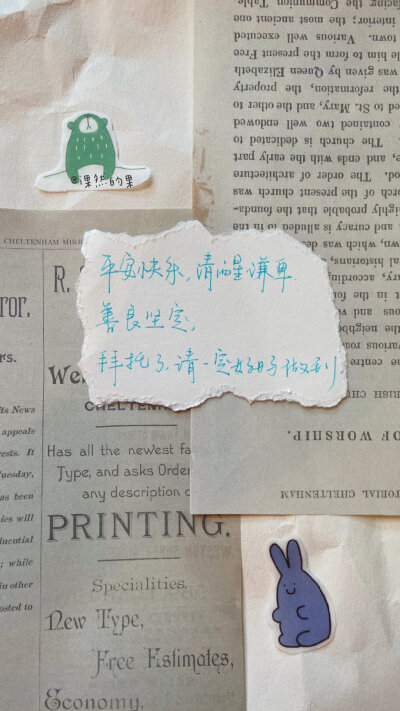 @课然的果
CHELTENHAM MIRR
平安快乐,清醒谦卑
善良坚定,
拜托了,请一定好好做到
R. S
ror.
rs.
Wel
CHELTENHAM
lts News
appeals
rests. It
Tuesday,
as been
ies will
fluential
; while
in other
osted to
Has all the newest fa
Type, and asks Order
any description o
PRINTING.
Specialities.
New Type,
Free Estimates,
Economy.
TORIAL CHELTENHAM
OF WORSHIP.
RISH CH
e centre
various road
the neighbo
ous and ve
t in the fo
ry, according
al historians,
wn, which was de
and curacy is alluded to in the
ighly probable that the founda-
rch of the present church was
od. The order of architecture
e, and ends with the early part
The church is dedicated to
contained two well endowed
ed to St. Mary, and the other to
the reformation, the property
was given by Queen Elizabeth
le him to form the present Free
town. Various well executed
interior; the most ancient one
facing the Communion Table,